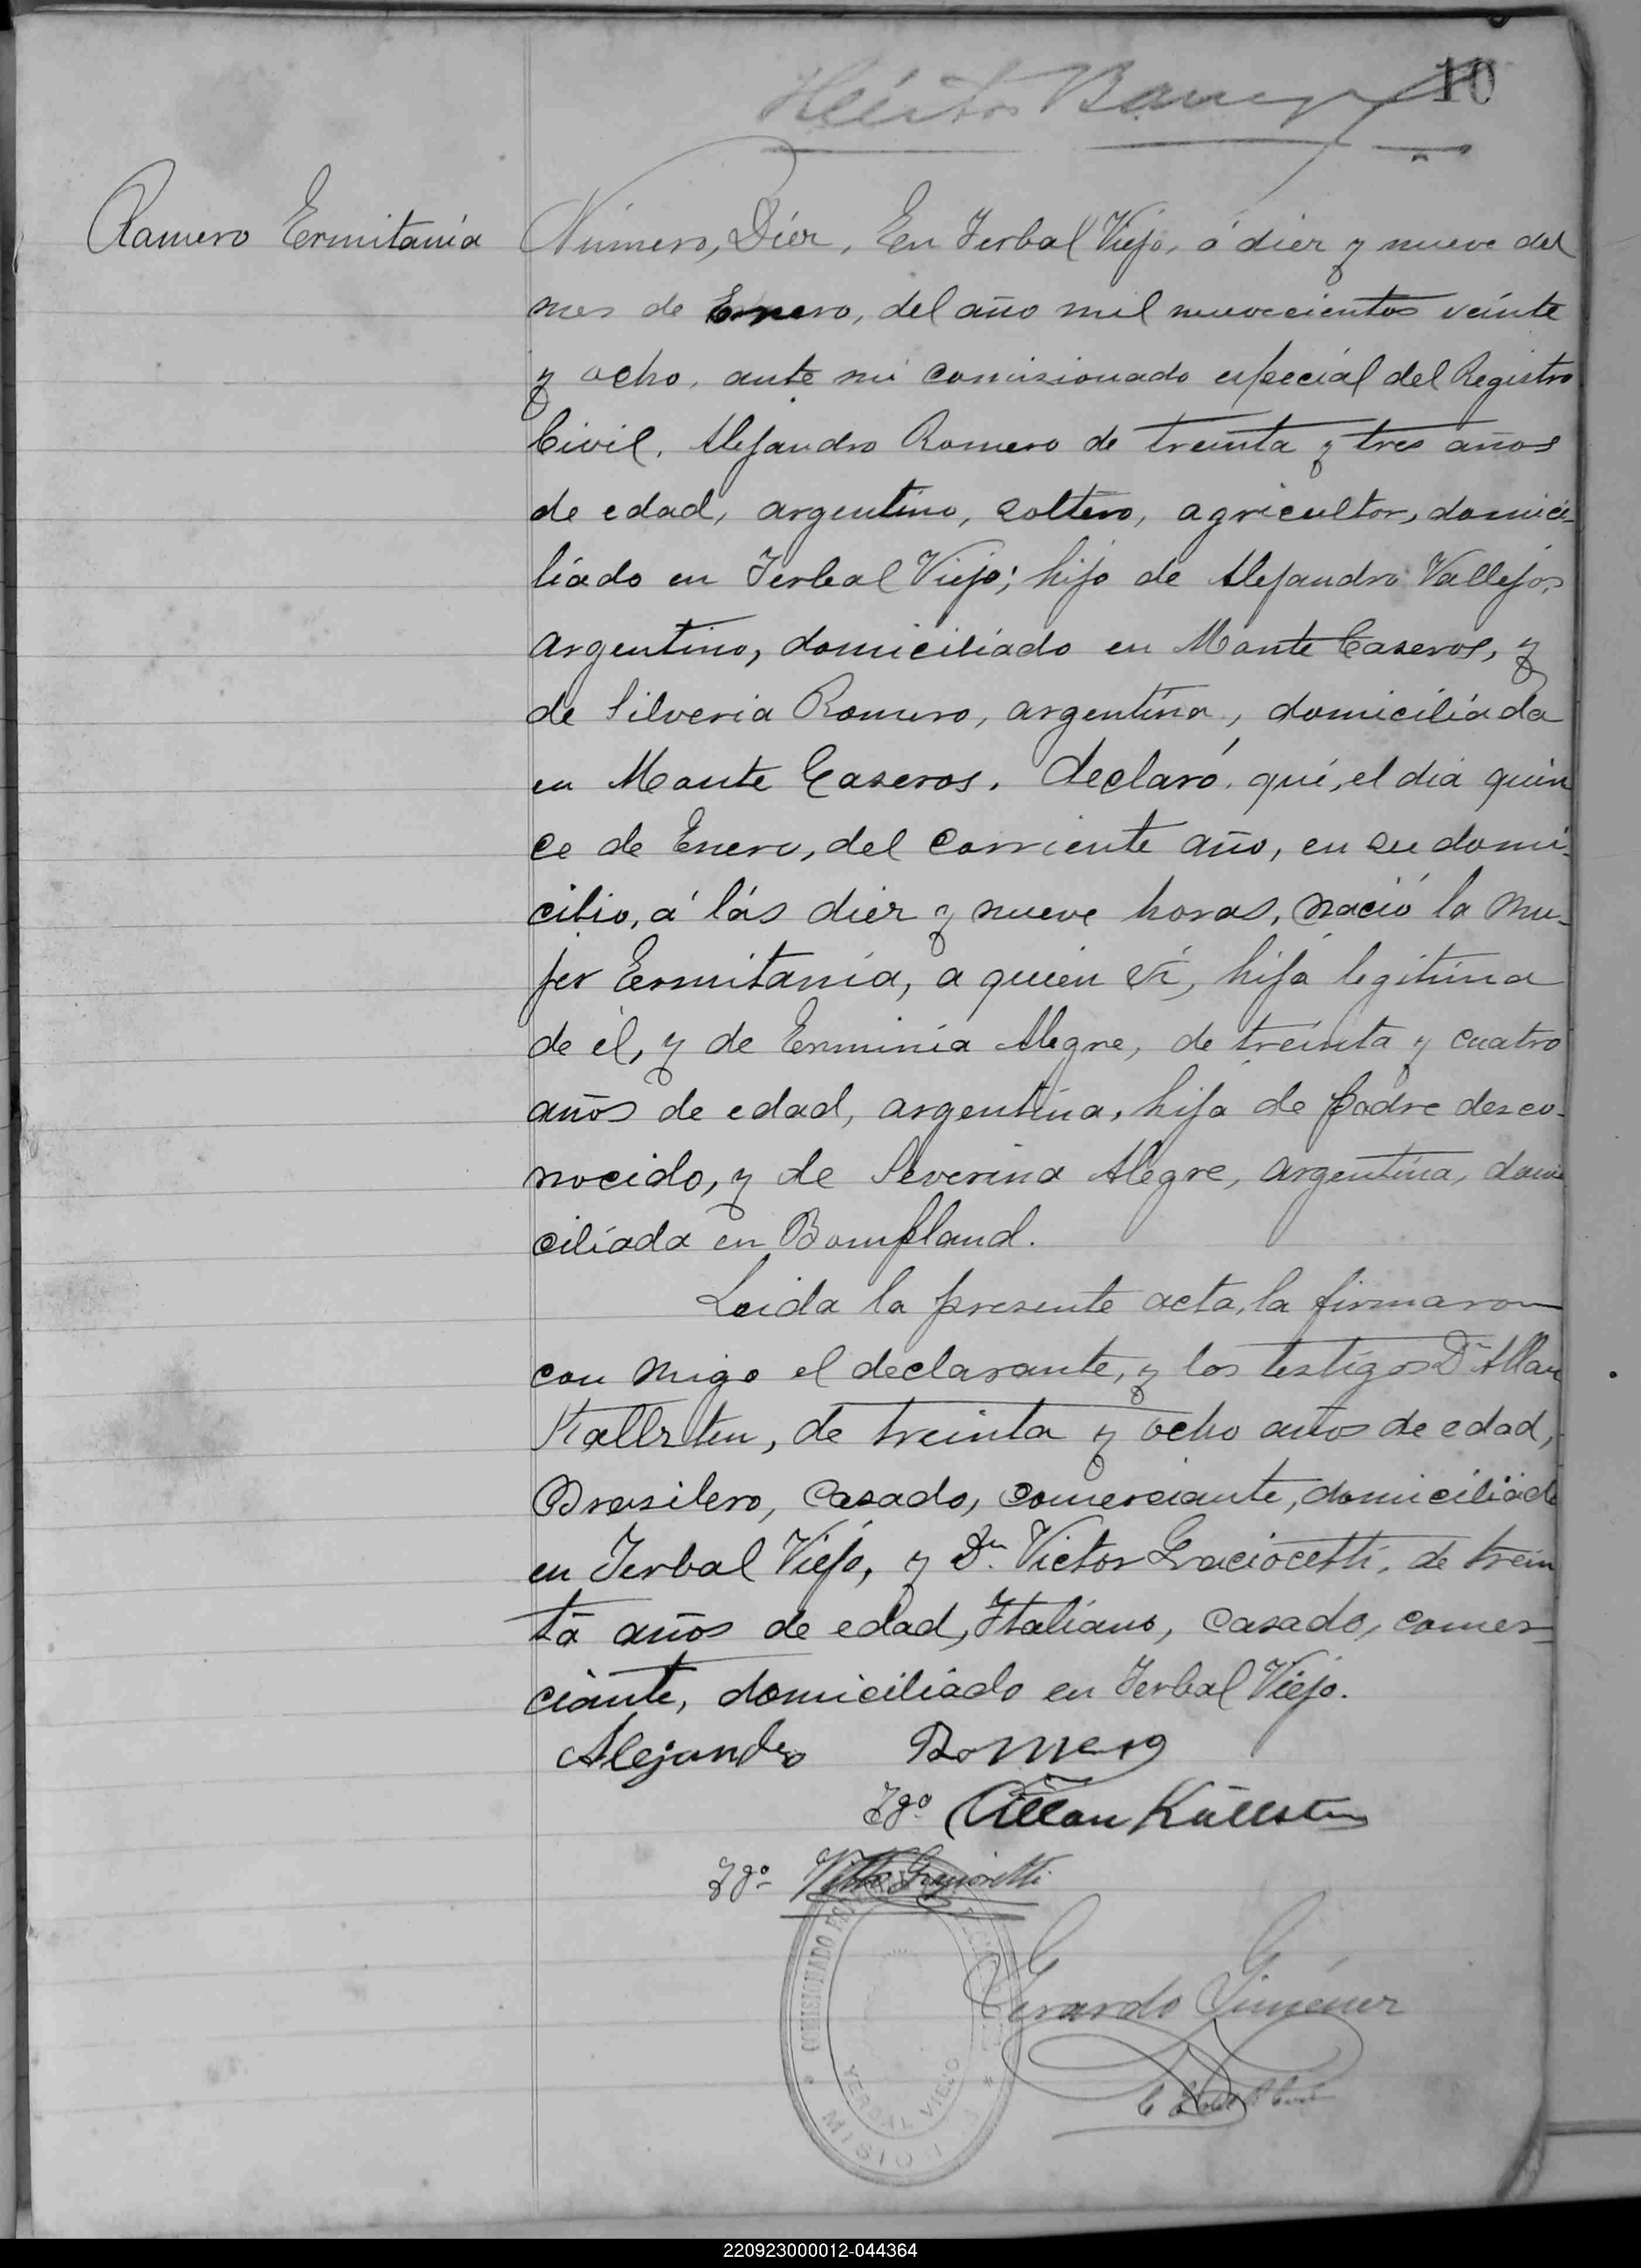 10
Romero Ermitania
Número, Diéz, En Yerbal Viejo, á diez y nueve del
mes de Enero, del año mil nuevecientos veinte
y ocho, ante mi comisionado especial del Registro
Civil. Alejandro Romero de treinta y tres años
de edad, argentino, soltero, agricultor, domici-
liado en Yerbal Viejo; hijo de Alejandro Vallejos,
argentino, domiciliado en Monte Caseros, y
de Silveria Romero, argentina, domiciliada
en Monte Caseros. Declaró, que, el dia quin
ce de Enero, del corriente año, en su domi-
cilio, á lás diez y nueve horas, nació la mu-
jer Ermitania, a quien vi, hija legitima
de él, y de Erminia Alegre, de treinta y cuatro
años de edad, argentina, hija de padre desco-
nocido, y de Severina Alegre, argentina, domi
ciliada en Bompland.
Leida la presente acta, la firmaron
con migo el declarante, y los testigos Dn Allan
Kallsten, de treinta y ocho años de edad,
Brasilero, casado, comerciante, domiciliado
en Yerbal Viejo, y Dn. Victor de trein
ta años de edad, Italiano, casado, comer-
ciante, domiciliado en Yerbal Viejo.
Alejandro Romero
Tgo Allan Källsten
Tgo
COMISIONADO
YERBAL VIEJO
MISIONES
Gerardo Giménez
220923000012-044364